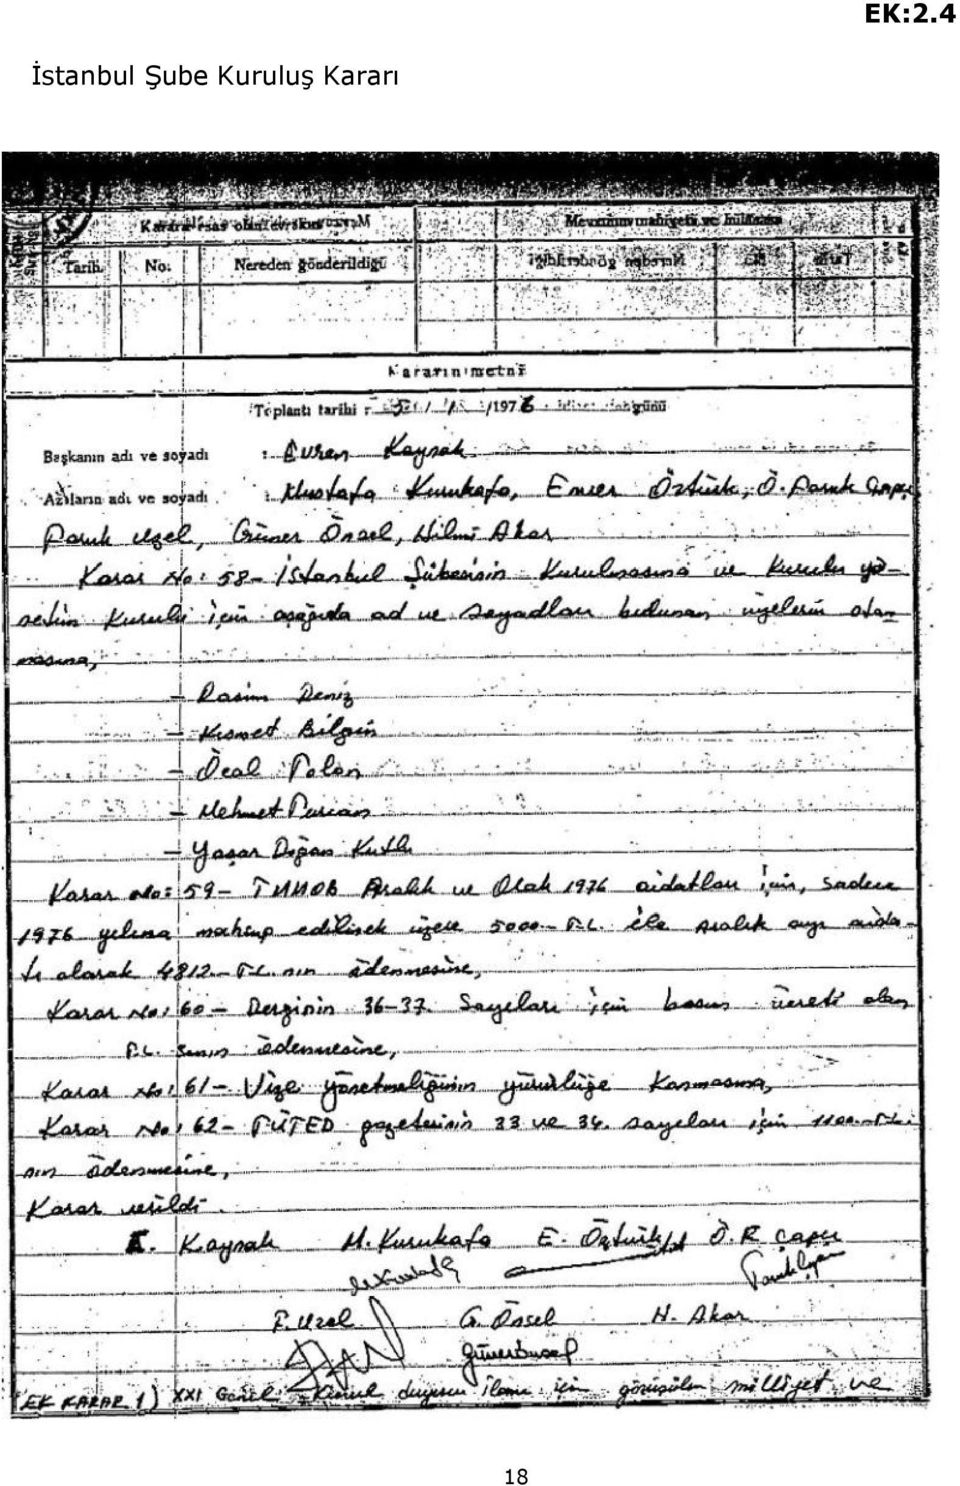 EK:2.4
İstanbul Şube Kuruluş Kararı
Karara esas olan evrakın
Mevzuunun mahiyeti ve hülâsası
Tarih No: Nereden gönderildiği
Kararın metni
Toplantı tarihi : /1976 günü
Başkanın adı ve soyadı : Kaynak
Azâların adı ve soyadı : Mustafa Kurukafa, Enver Öztürk, Ö. Faruk Çapçı
Faruk Uzel, Güner Önsel, Hilmi Akar
Karar No: 58- İstanbul Şübesinin Kurulmasına ve Kurucu yö-
netim Kurulu için aşağıda ad ve soyadları bulunan üyelerin atan-
masına,
- Rasim Deniz
- Kısmet Bilgin
- Öcal
- Mehmet
- Yaşar Doğan Kutlu
Karar No: 59- TMMOB Aralık ve Ocak 1976 aidatları için, sadece
1976 yılına mahsup edilmek üzere 5000.-T.L. ile aralık ayı aida-
tı olarak 4812-T.L. nın ödenmesine,
Karar No: 60- Derginin 36-37. Sayıları için basım ücreti olan
T.L. sının ödenmesine,
Karar No: 61- Vize yönetmeliğinin yürürlüğe konmasına,
Karar No: 62- TÜTED gazetesinin 33 ve 34. sayıları için 1100.-T.L.
nın ödenmesine,
Karar verildi.
Kaynak M. Kurukafa E. Öztürk Ö. F. Çapçı
F. Uzel G. Önsel H. Akar
EK KARAR 1) XXI Genel Kurul duyuru ilanı için görüşülen milliyet ve
18